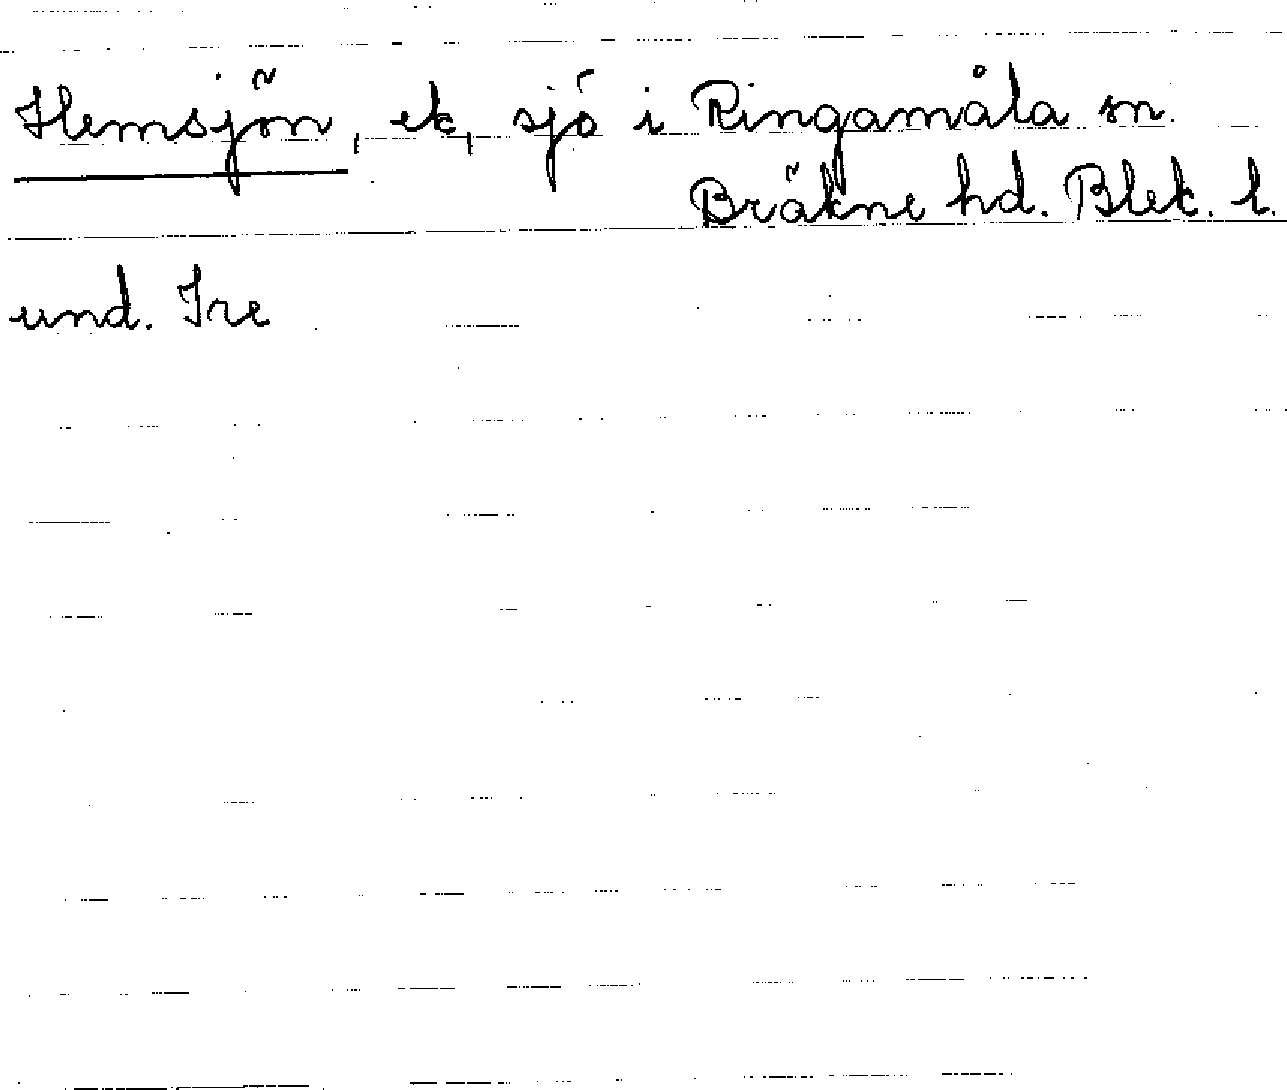 Hemsjön, ek, sjö i Ringamåla sn.
Bräkne hd. Blek. l.
und. Ire